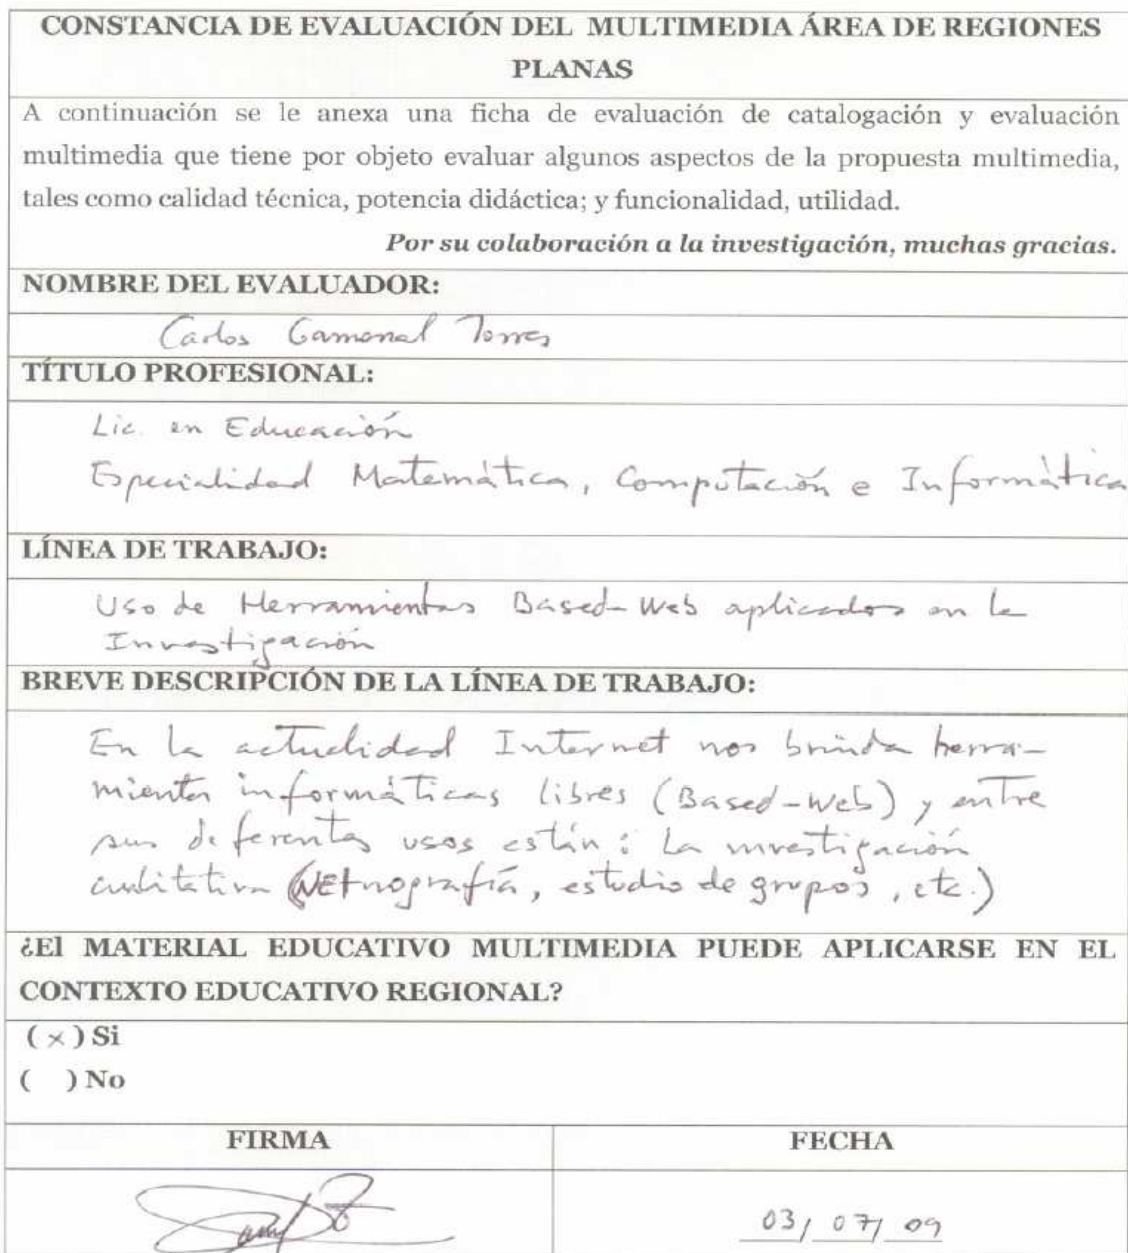 CONSTANCIA DE EVALUACIÓN DEL MULTIMEDIA ÁREA DE REGIONES
PLANAS
A continuación se le anexa una ficha de evaluación de catalogación y evaluación
multimedia que tiene por objeto evaluar algunos aspectos de la propuesta multimedia,
tales como calidad técnica, potencia didáctica; y funcionalidad, utilidad.
Por su colaboración a la investigación, muchas gracias.
NOMBRE DEL EVALUADOR:
Carlos Gamonal Torres
TÍTULO PROFESIONAL:
Lic. en Educación
Especialidad Matemática, Computación e Informática
LÍNEA DE TRABAJO:
Uso de Herramientas Based-Web aplicados en la
Investigación
BREVE DESCRIPCIÓN DE LA LÍNEA DE TRABAJO:
En la actualidad Internet nos brinda herra-
mientas informáticas libres (Based-Web) y entre
sus deferentes usos están: La investigación
cualitativa (NETnografía, estudio de grupos, etc.)
¿El MATERIAL EDUCATIVO MULTIMEDIA PUEDE APLICARSE EN EL
CONTEXTO EDUCATIVO REGIONAL?
( x ) Si
( ) No
FIRMA FECHA
03/ 07/ 09